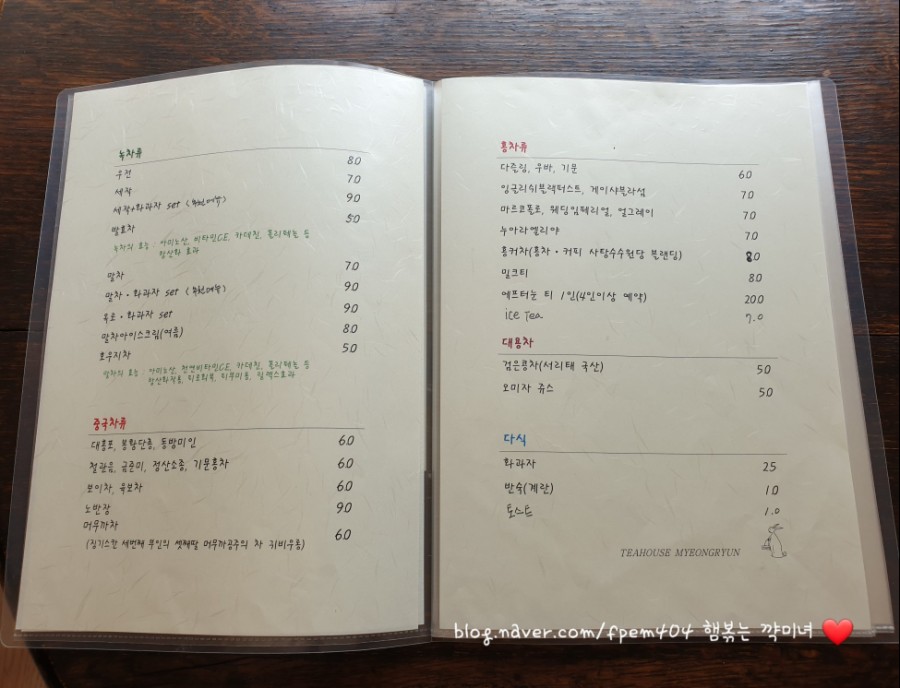 녹차류
우전 8.0
세작 7.0
세작+화과자 set (추천메뉴) 9.0
발효차 5.0
녹차의 효능 : 아미노산, 비타민C.E, 카테킨, 폴리페놀 등
항산화 효과
말차 7.0
말차 · 화과자 set (추천메뉴) 9.0
옥로 · 화과자 set 9.0
말차아이스크림(여름) 8.0
호우지차 5.0
말차의 효능 : 아미노산, 천연비타민C.E, 카테킨, 폴리페놀 등
항산화작용, 피로회복, 피부미용, 릴렉스효과
중국차류
대홍포, 봉황단총, 동방미인 6.0
철관음, 금준미, 정산소종, 기문홍차 6.0
보이차, 육보차 6.0
노반장 9.0
머무까차
(징기스칸 세번째 부인의 셋째딸 머무까공주의 차 귀비우롱) 6.0
홍차류
다즐링, 우바, 기문 6.0
잉글리쉬블랙퍼스트, 게이샤블라섬 7.0
마르코폴로, 웨딩임페리얼, 얼그레이 7.0
누아라엘리야 7.0
홍커차(홍차 · 커피 사탕수수원당 블랜딩) 8.0
밀크티 8.0
에프터눈 티 1인(4인이상 예약) 20.0
ice Tea 7.0
대용차
검은콩차(서리태 국산) 5.0
오미자 쥬스 5.0
다식
화과자 2.5
반숙(계란) 1.0
토스트 1.0
TEAHOUSE MYEONGRYUN
blog.naver.com/fpem404 햄볶는 꺅미녀